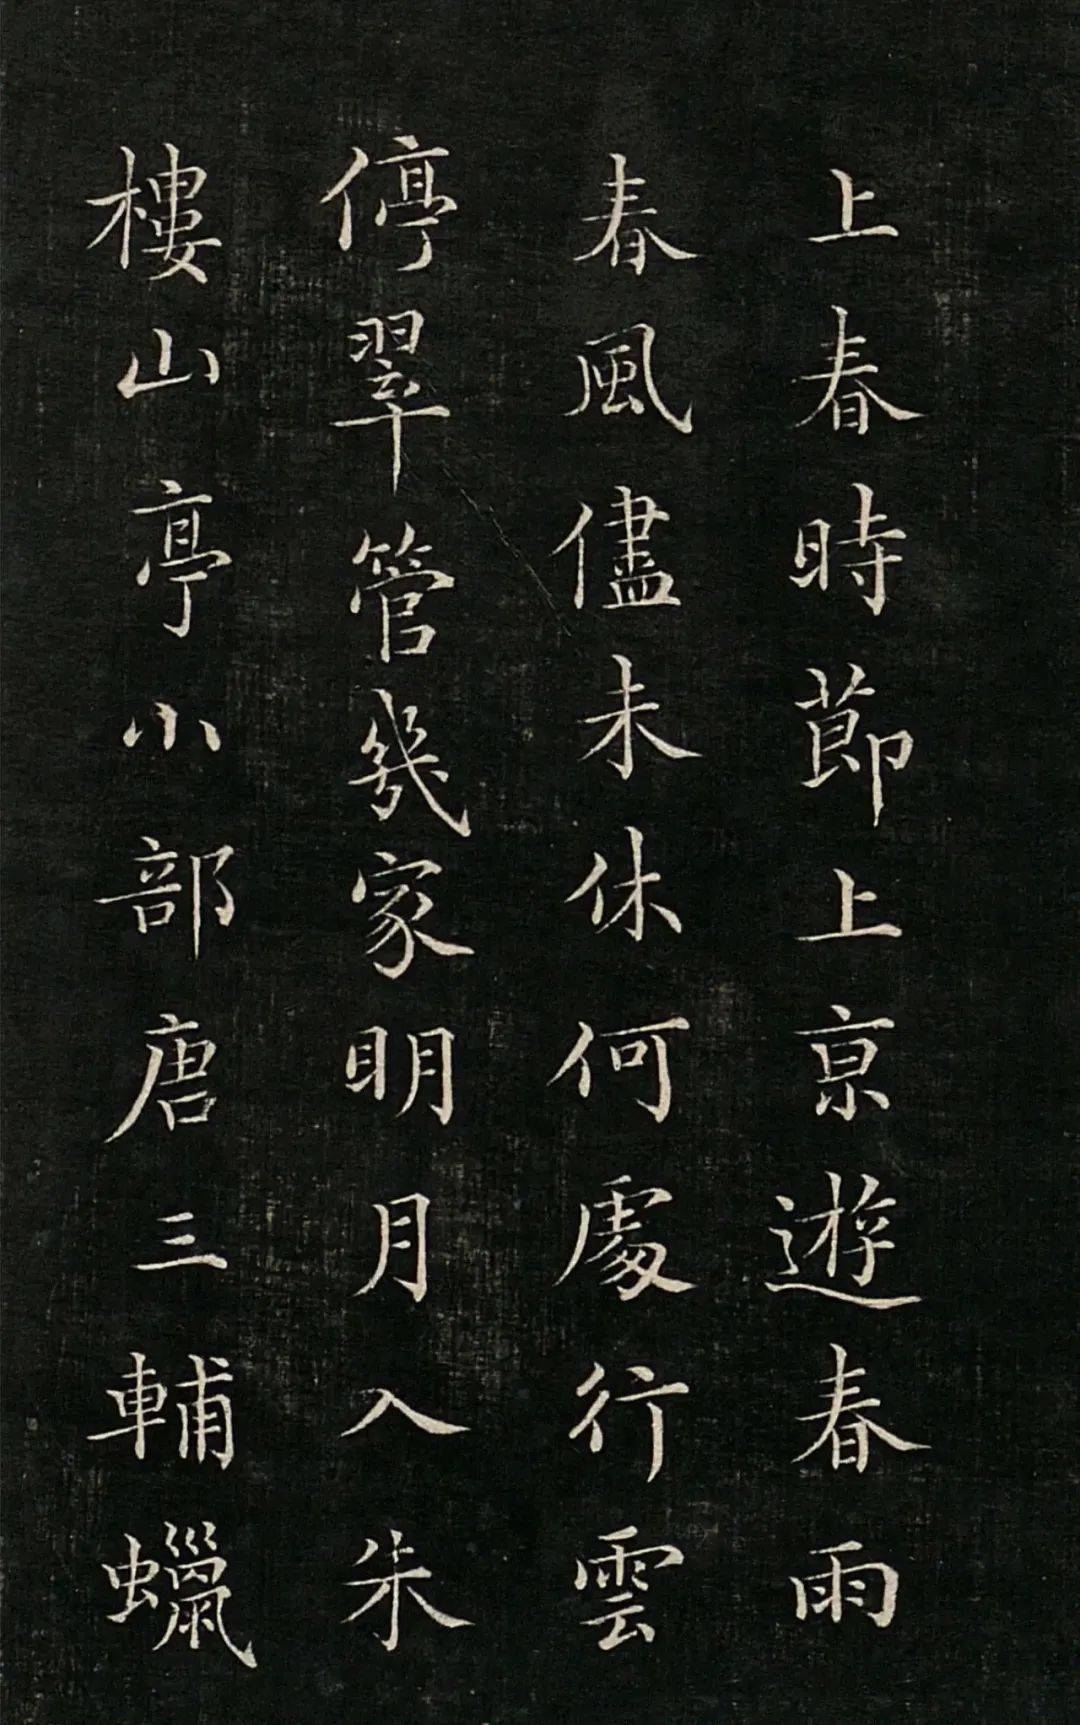 上春時節上京遊春雨
春風儘未休何處行雲
停翠管幾家明月入朱
樓山亭小部唐三輔蠟